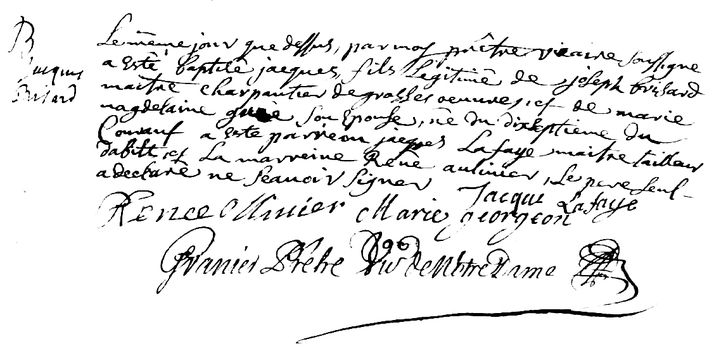 B
jacques
Brisard
Le même jour que dessus, par moy prêtre vicaire soussigné
a esté baptisé jacques, fils Legitime de joseph brisard
maitre charpentier de grosses oeuvres, et de marie
magdelaine son epouse, né du dixseptieme du
Courant a esté parrein jacques Lafaye maitre tailleur
d'abits et La marreine Renée aunier, Le pere seul
a declaré ne scavoir signer
Jacque Lafaye
Renée Marie georgeon
Granier Prêtre Vic de Nôtre Dame